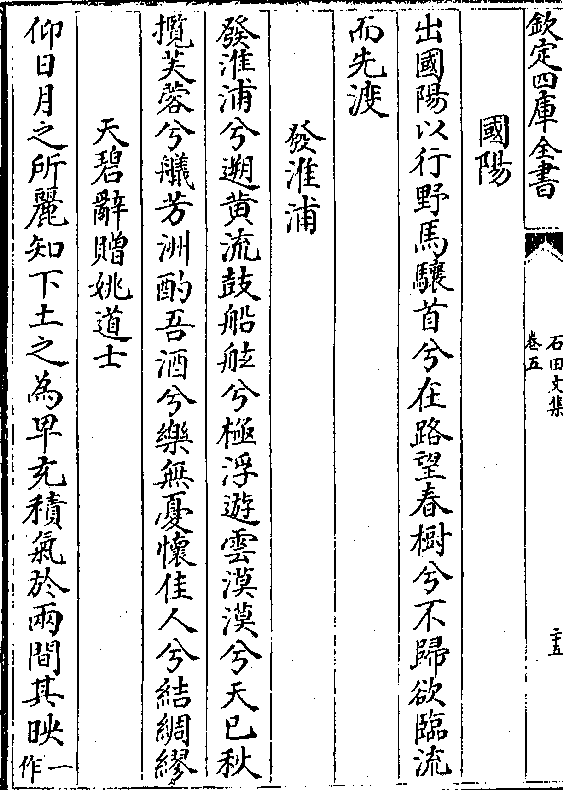 欽定四庫全書
石田文集
卷五
二十五
國陽
出國陽以行野馬驤首兮在路望春樹兮不歸欲臨流
而先渡
發淮浦
發淮浦兮遡黄流鼓船舷兮極浮遊雲漠漠兮天已秋
攬芙蓉兮艤芳洲酌吾酒兮樂無憂懷佳人兮結綢繆
天碧辭贈姚道士
仰日月之所麗知下土之為卑充積氣於兩間其映一作